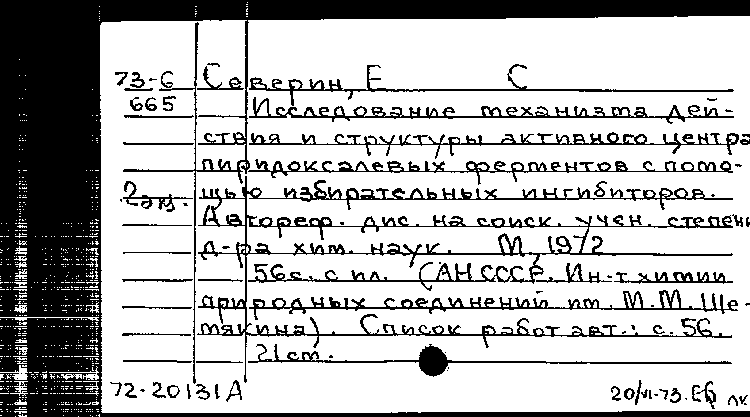 73-6 Северин, Е С
665 Исследование механизма дей-
ствия и структуры активного центра
пиридоксалевых ферментов с помо-
2 экз. щью избирательных ингибиторов.
Автореф. дис. на соиск. учен. степени
д-ра хим. наук. М., 1972
56 с. с ил. (АН СССР. Ин-т химии
природных соединений им. М.М. Ше-
мякина). Список работ авт.: с. 56.
21 cm.
72-20131А 20/VI-73. ЕБ